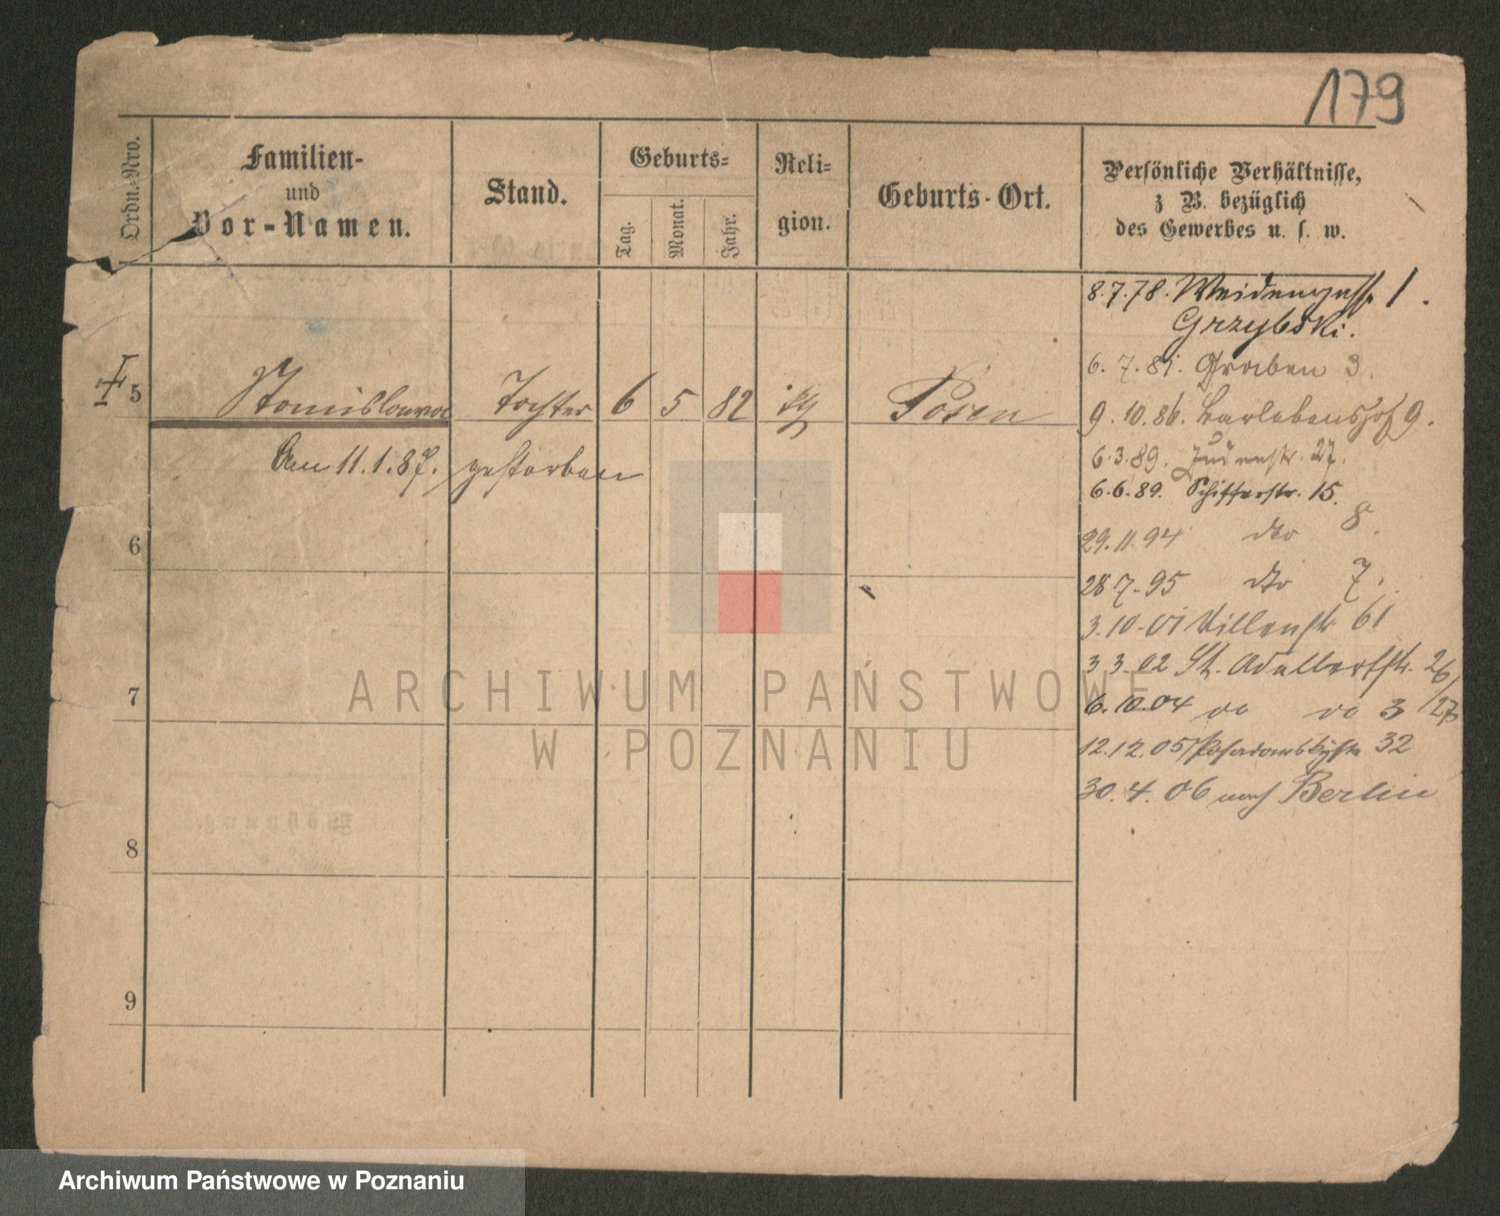 179
Ordn.-Nro.
Familien-
und
Vor-Namen.
Stand.
Geburts-
Tag.
Monat.
Jahr.
Reli-
gion.
Geburts-Ort.
Persönliche Verhältnisse,
z B. bezüglich
des Gewerbes u. s. w.
8.7.78. Weidengasse 1.
Grzybski.
6.7.81. Graben 3.
5 Stanislawa Tochter 6 5 82 Posen
9.10.86. Barlebenshof 9.
Am 11.1.87. gestorben
6.3.89. Judenstr. 27.
6.6.89. Schifferstr. 15.
29.11.94 dto 8.
6
28 7.95 dto 7.
3.10.01 Villenstr 61
3 3.02 St. Adalbertstr. 26/27
7
6.10.04 do do 3
12.12.05 32
30.4.06 nach Berlin
8
9
ARCHIWUM PAŃSTWOWE
W POZNANIU
Archiwum Państwowe w Poznaniu